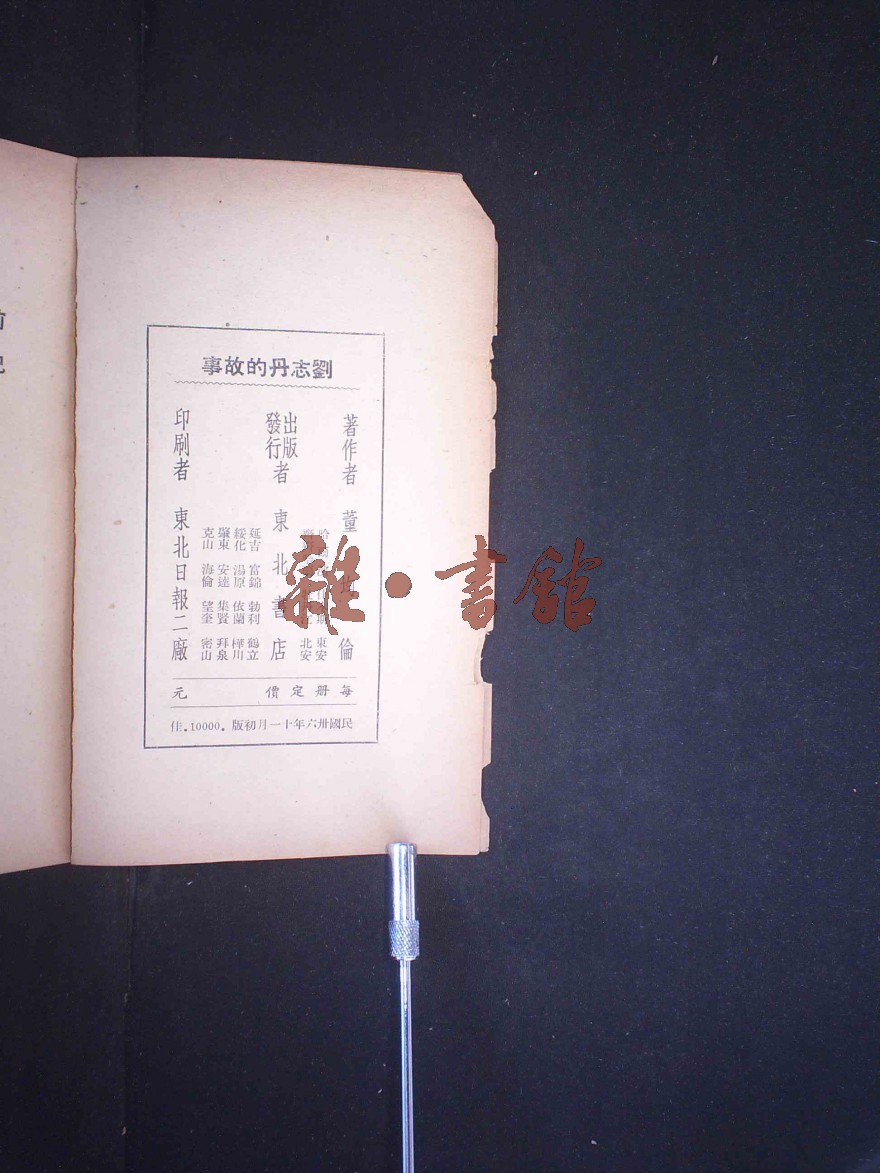 劉志丹的故事
著作者 董 倫
出版
發行者 東北書店
東安
北安
延吉 富錦 勃利 鶴立
綏化 湯原 依蘭 樺川
肇東 安達 集賢 拜泉
克山 海倫 望奎 密山
印刷者 東北日報二廠
每册定價 元
民國卅六年十一月初版．10000．佳
雜·書館